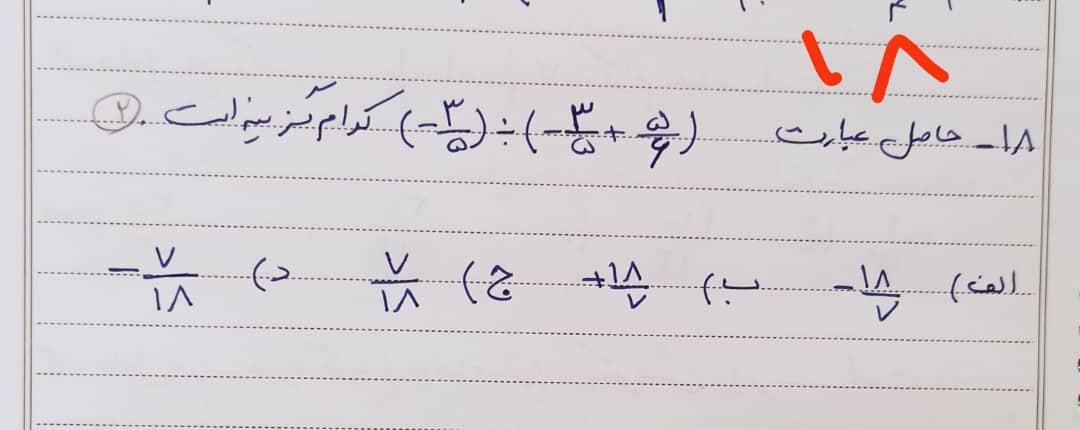 ۱۸
۱۸- حاصل عبارت (-۳/۵) ÷ (-۳/۵ + ۵/۶) کدام گزینه است؟
الف) -۱۸/۷ ب) +۱۸/۷ ج) ۷/۱۸ د) -۷/۱۸